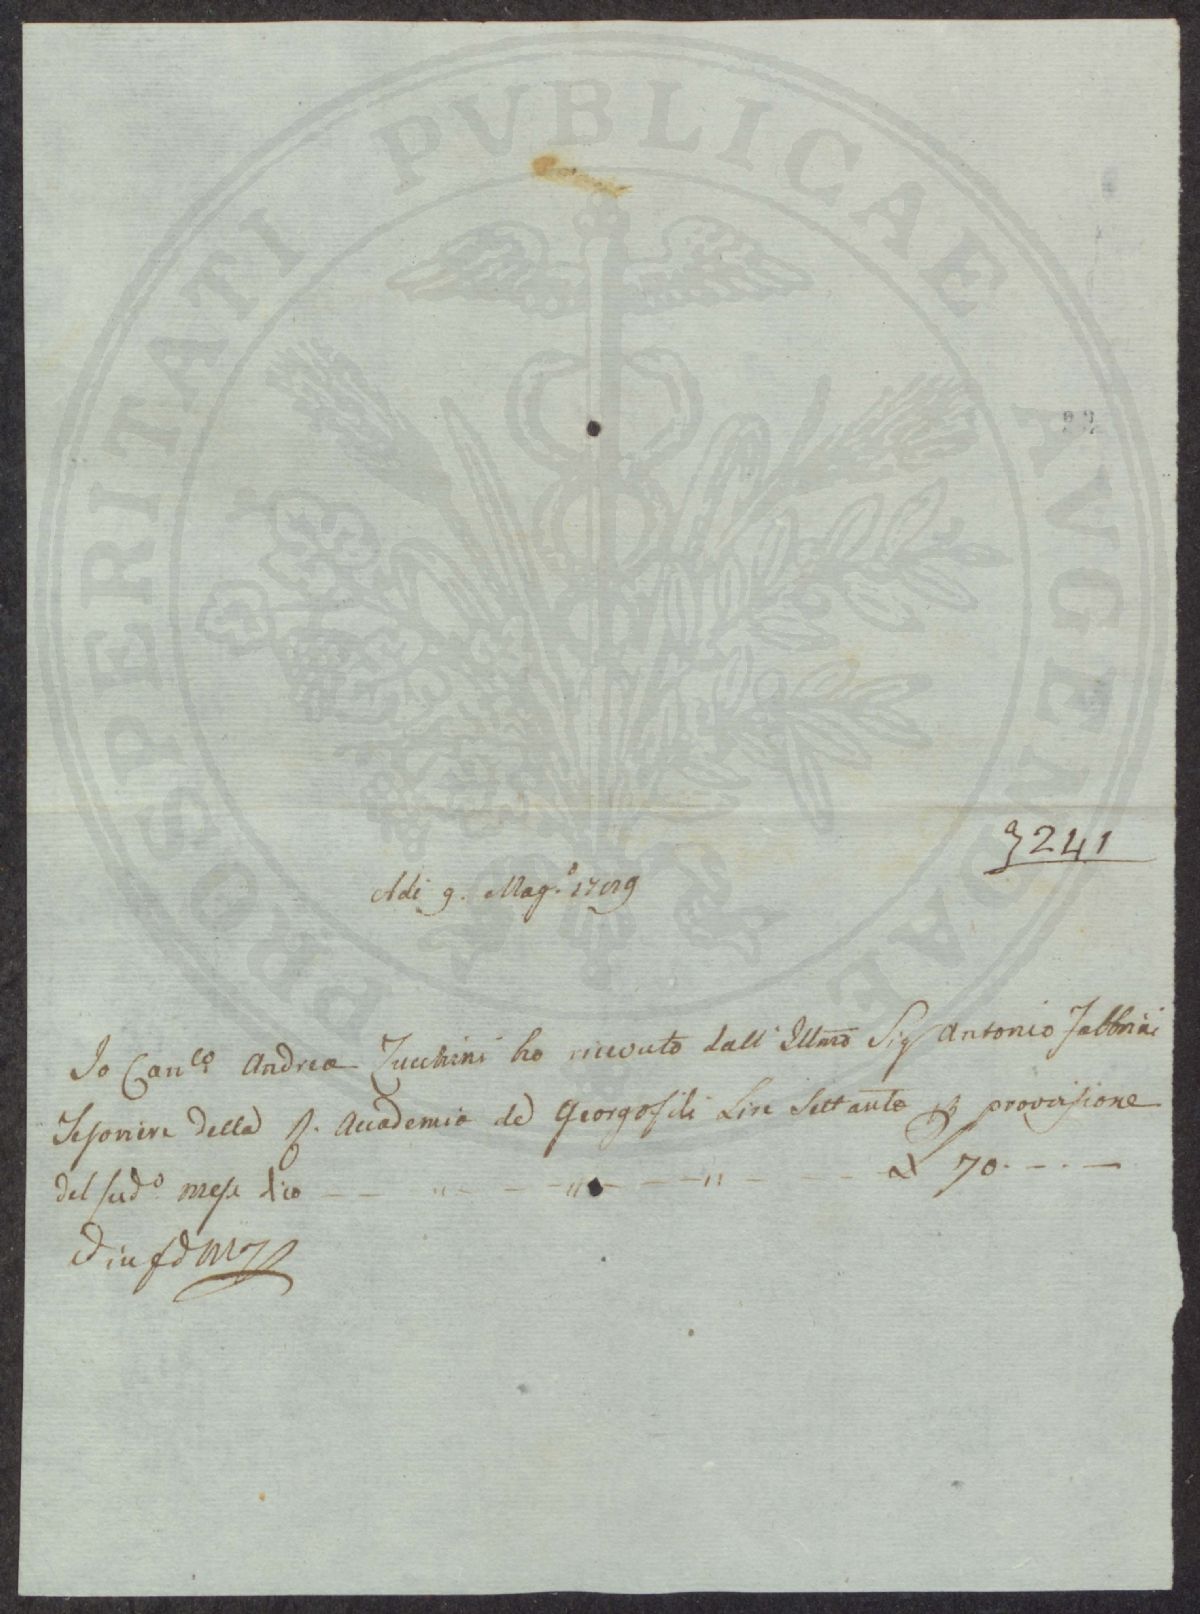 PROSPERITATI PUBLICAE AVGENDAE
241
Adi 9. Mag.o
Io Can.co Andrea Zucchini ho ricevuto dall' Illmo Sig Antonio Fabbrini
Tesoriere della R. Accademia de Georgofili Lire Settanta p provvisione
del sud.o mese dico - - " - - " - - " - - £ 70. - . -